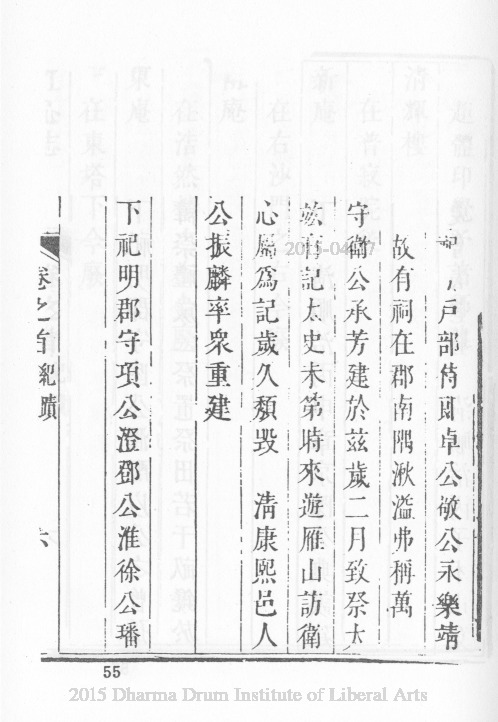 戶部侍郎卓公敬公永樂靖
故有祠在郡南隅湫溢弗稱萬
守衛公承芳建於茲歲二月致祭太
有記太史未第時來遊雁山訪衛
心屬為記歲久頹毀　清康熙邑人
公振麟率衆重建
下祀明郡守項公澄鄧公淮徐公璠
卷之首紀蹟
六
55
2015-04-07
2015 Dharma Drum Institute of Liberal Arts